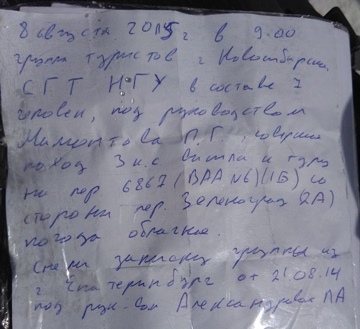 8 августа 2015 г. в 9.00
группа туристов г. Новосибирска
СГТ НГУ в составе 7
человек, под руководством
Мамонтова П.Г., совершая
поход 3 к.с вышла к туру
на пер 6867 (ВАА N6)(1Б) со
стороны пер. Зеленоград (2А)
погода облачная.
Сняли записку группы из
г. Екатеринбург от 21.08.14
под рук-вом Александровой ЛА